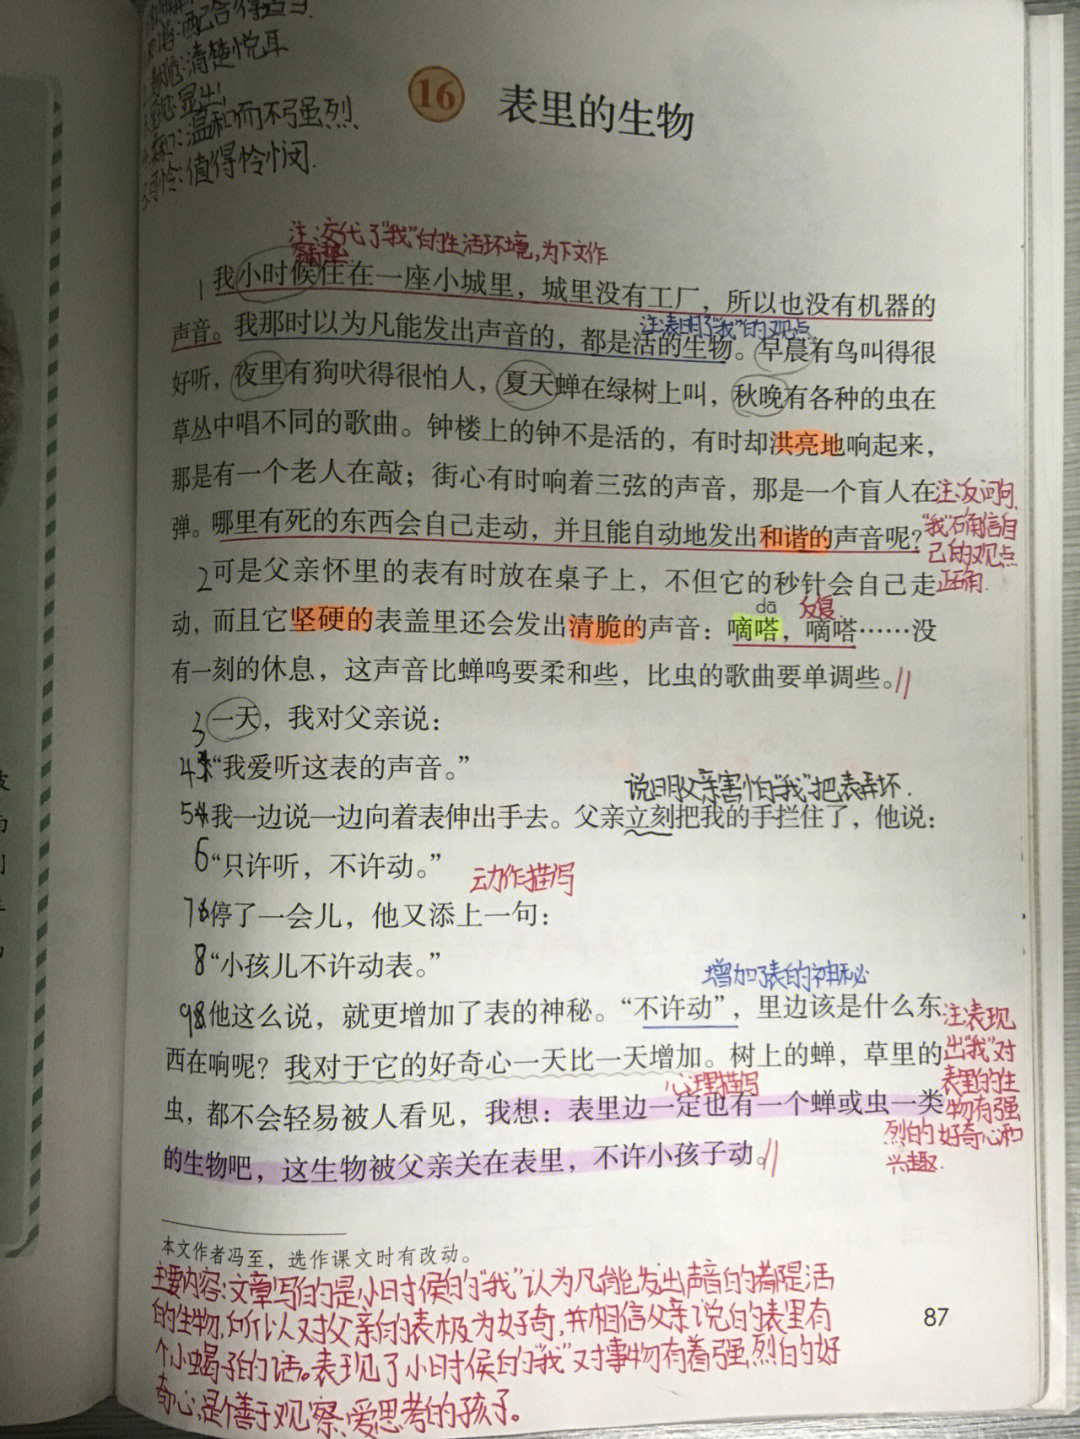 洽:配合得适当.
脆:清楚悦耳
显生
温和而不强烈
怜:值得怜悯.
16 表里的生物
注:交代了“我”的生活环境,为下文作
1我小时候住在一座小城里，城里没有工厂，所以也没有机器的
声音。我那时以为凡能发出声音的，都是活的生物。早晨有鸟叫得很
注:表明了“我”的观点.
好听，夜里有狗吠得很怕人，夏天蝉在绿树上叫，秋晚有各种的虫在
草丛中唱不同的歌曲。钟楼上的钟不是活的，有时却洪亮地响起来，
那是有一个老人在敲；街心有时响着三弦的声音，那是一个盲人在
弹。哪里有死的东西会自己走动，并且能自动地发出和谐的声音呢？
注:反问句,
“我”确信自
己的观点
正确.
2可是父亲怀里的表有时放在桌子上，不但它的秒针会自己走
dā 反复
动，而且它坚硬的表盖里还会发出清脆的声音：嘀嗒，嘀嗒……没
有一刻的休息，这声音比蝉鸣要柔和些，比虫的歌曲要单调些。
3一天，我对父亲说：
4“我爱听这表的声音。”
说明父亲害怕“我”把表弄坏.
5我一边说一边向着表伸出手去。父亲立刻把我的手拦住了，他说：
6“只许听，不许动。”
动作描写
7停了一会儿，他又添上一句：
8“小孩儿不许动表。”
增加了表的神秘
9他这么说，就更增加了表的神秘。“不许动”，里边该是什么东
西在响呢？我对于它的好奇心一天比一天增加。树上的蝉，草里的
心理描写
虫，都不会轻易被人看见，我想：表里边一定也有一个蝉或虫一类
的生物吧，这生物被父亲关在表里，不许小孩子动。
注:表现
出“我”对
表里的生
物有强
烈的好奇心和
兴趣.
本文作者冯至，选作课文时有改动。
主要内容:文章写的是小时候的“我”认为凡能发出声音的都是活
的生物,所以对父亲的表极为好奇,并相信父亲说的表里有
个小蝎子的话。表现了小时候的“我”对事物有着强烈的好
奇心,是个善于观察,爱思考的孩子。
87